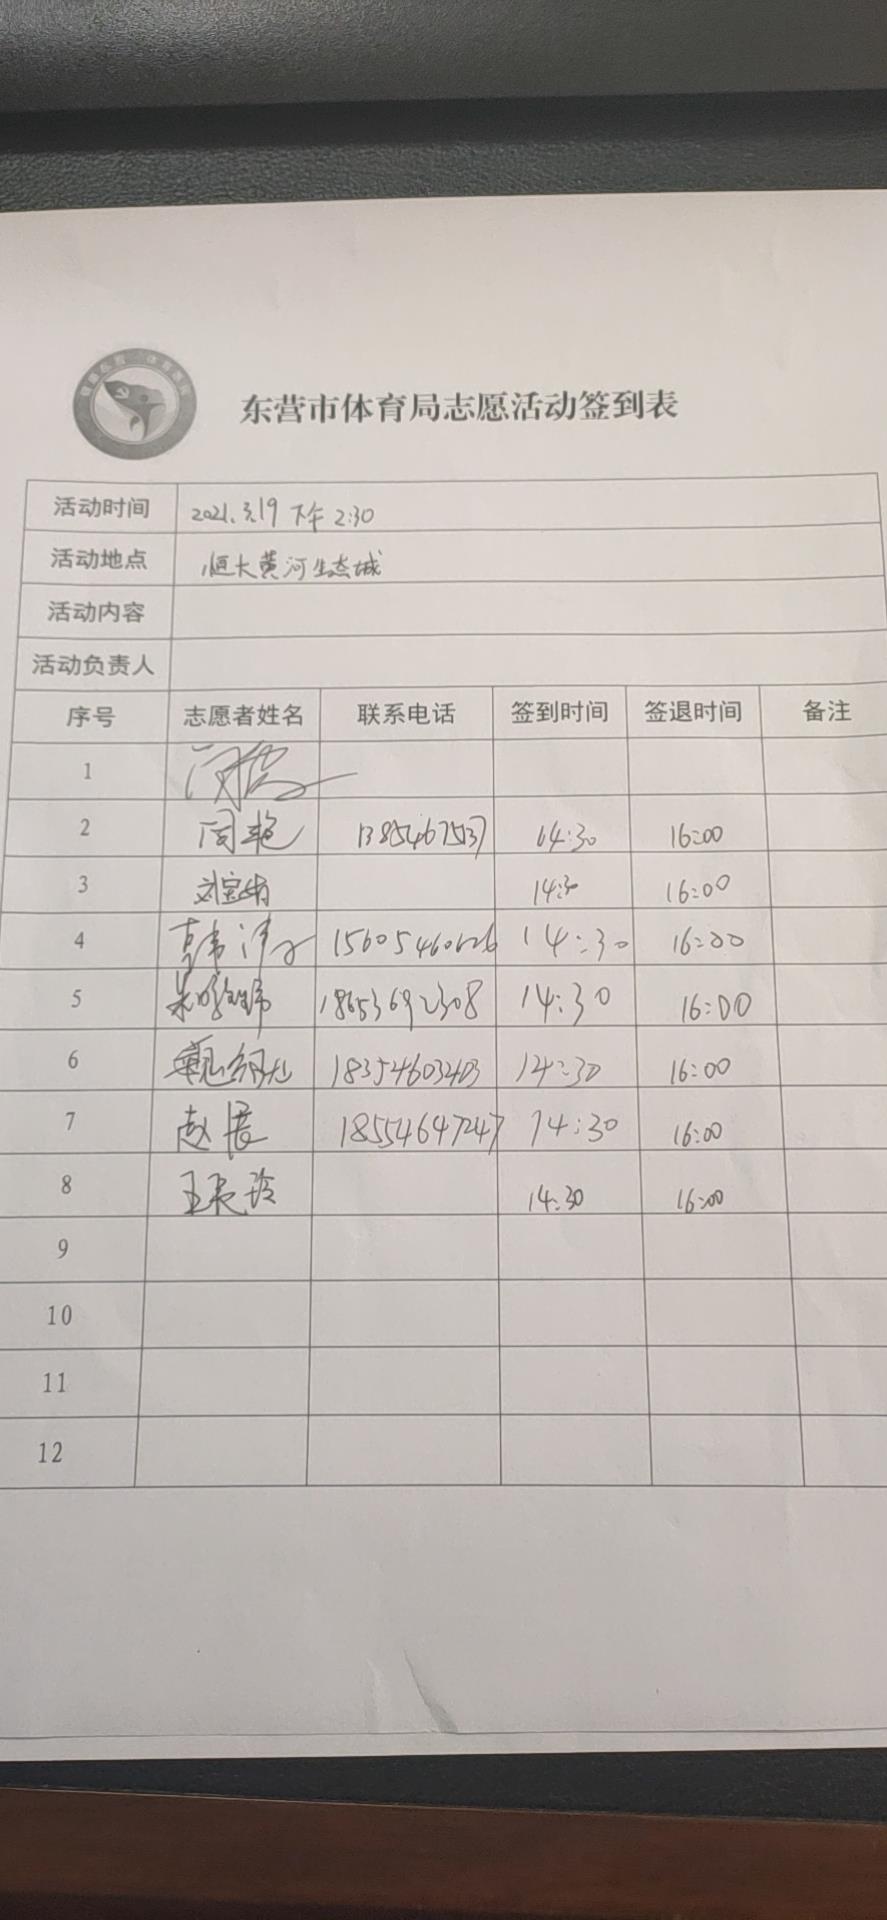 东营市体育局志愿活动签到表
活动时间 2021.3.19 下午 2:30
活动地点 恒大黄河生态城
活动内容
活动负责人
序号 志愿者姓名 联系电话 签到时间 签退时间 备注
1
2 周艳 14:30 16:00
3 14:30 16:00
4 韩 14:30 16:00
5 18653692308 14:30 16:00
6 18354603403 14:30 16:00
7 赵晨 18554647247 14:30 16:00
8 14:30 16:00
9
10
11
12